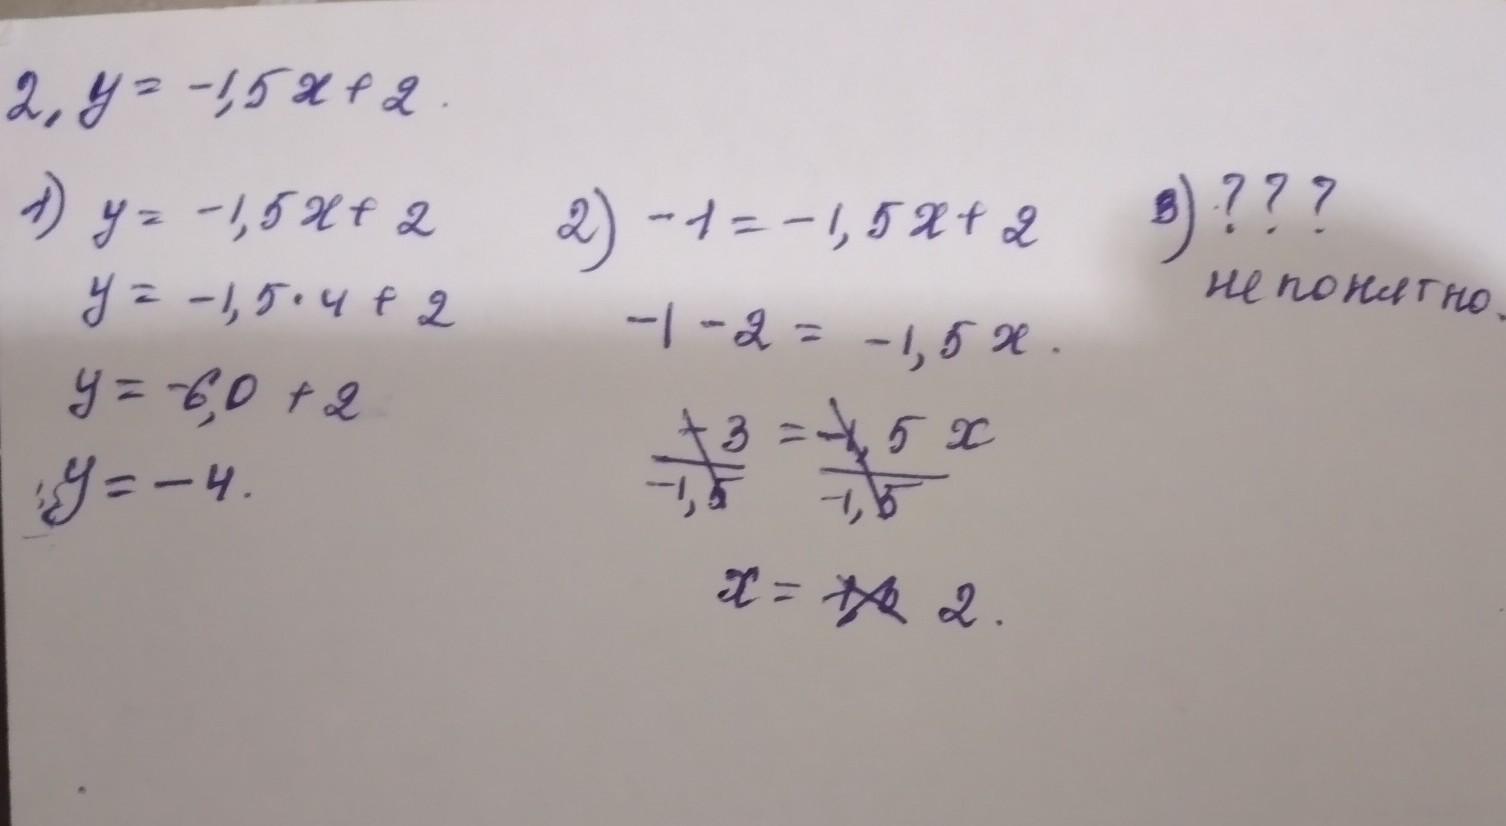 2, y = -1,5x + 2.
1) y = -1,5x + 2
y = -1,5 · 4 + 2
y = -6,0 + 2
y = -4.
2) -1 = -1,5x + 2
-1 - 2 = -1,5x.
-3 = -1,5x
-1,5 -1,5
x = 2.
3) ???
не понятно.